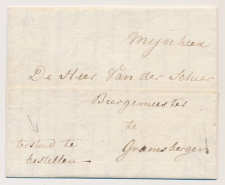 Mijnheer
De Heer Van der Scheer
Burgemeester
te
Gramsbergen
terstond te
bestellen